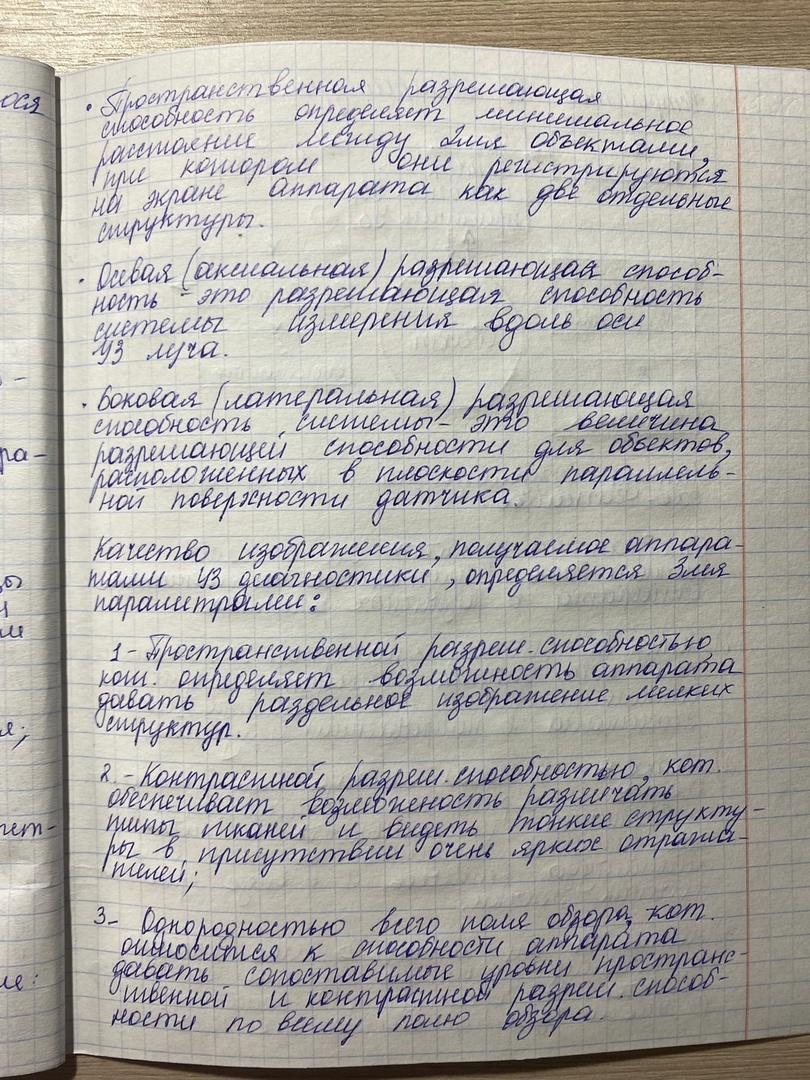 ося
• Пространственная разрешающая
способность определяет минимальное
расстояние между 2мя объектами,
при котором они регистрируются
на экране аппарата как две отдельные
структуры.
• Осевая (аксиальная) разрешающая способ-
ность - это разрешающая способность
системы измерения вдоль оси
УЗ луча.
• Боковая (латеральная) разрешающая
способность системы - это величина
разрешающей способности для объектов,
расположенных в плоскости параллель-
ной поверхности датчика.
Качество изображения, получаемое аппара-
тами УЗ диагностики, определяется 3мя
параметрами:
1 - Пространственной разреш. способностью,
кот. определяет возможность аппарата
давать раздельное изображение мелких
структур.
2. - Контрастной разреш. способностью, кот.
обеспечивает возможность различать
типы тканей и видеть тонкие структу-
ры в присутствии очень ярких отража-
телей;
3 - Однородностью всего поля обзора, кот.
относится к способности аппарата
давать сопоставимые уровни пространс-
твенной и контрастной разреш. способ-
ности по всему полю обзора.